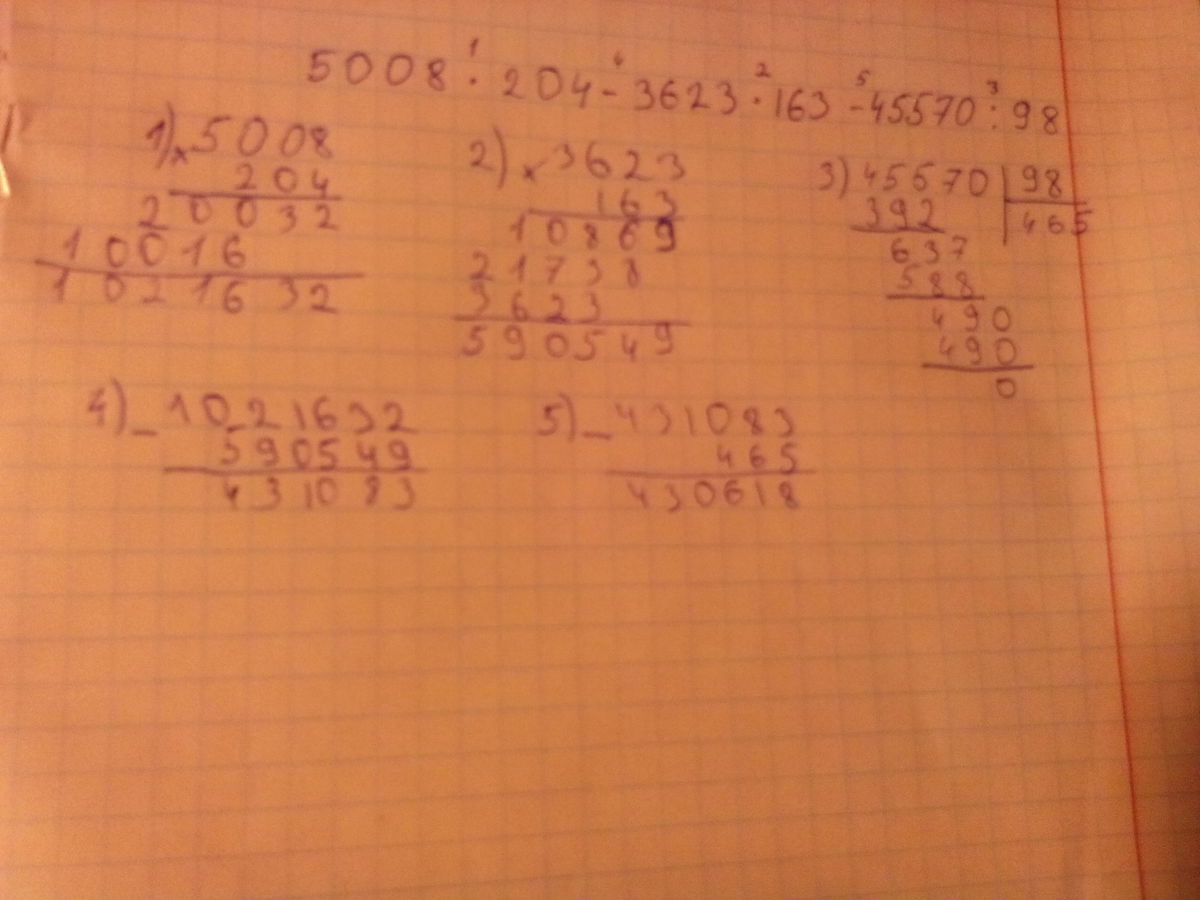 5008 · 204 - 3623 · 163 - 45570 : 98
1 4 2 5 3
1) × 5008
204
20032
10016
1021632
2) × 3623
163
10869
21738
3623
590549
3) 45570 | 98
392 | 465
637
588
490
490
0
4) - 1021632
590549
431083
5) - 431083
465
430618